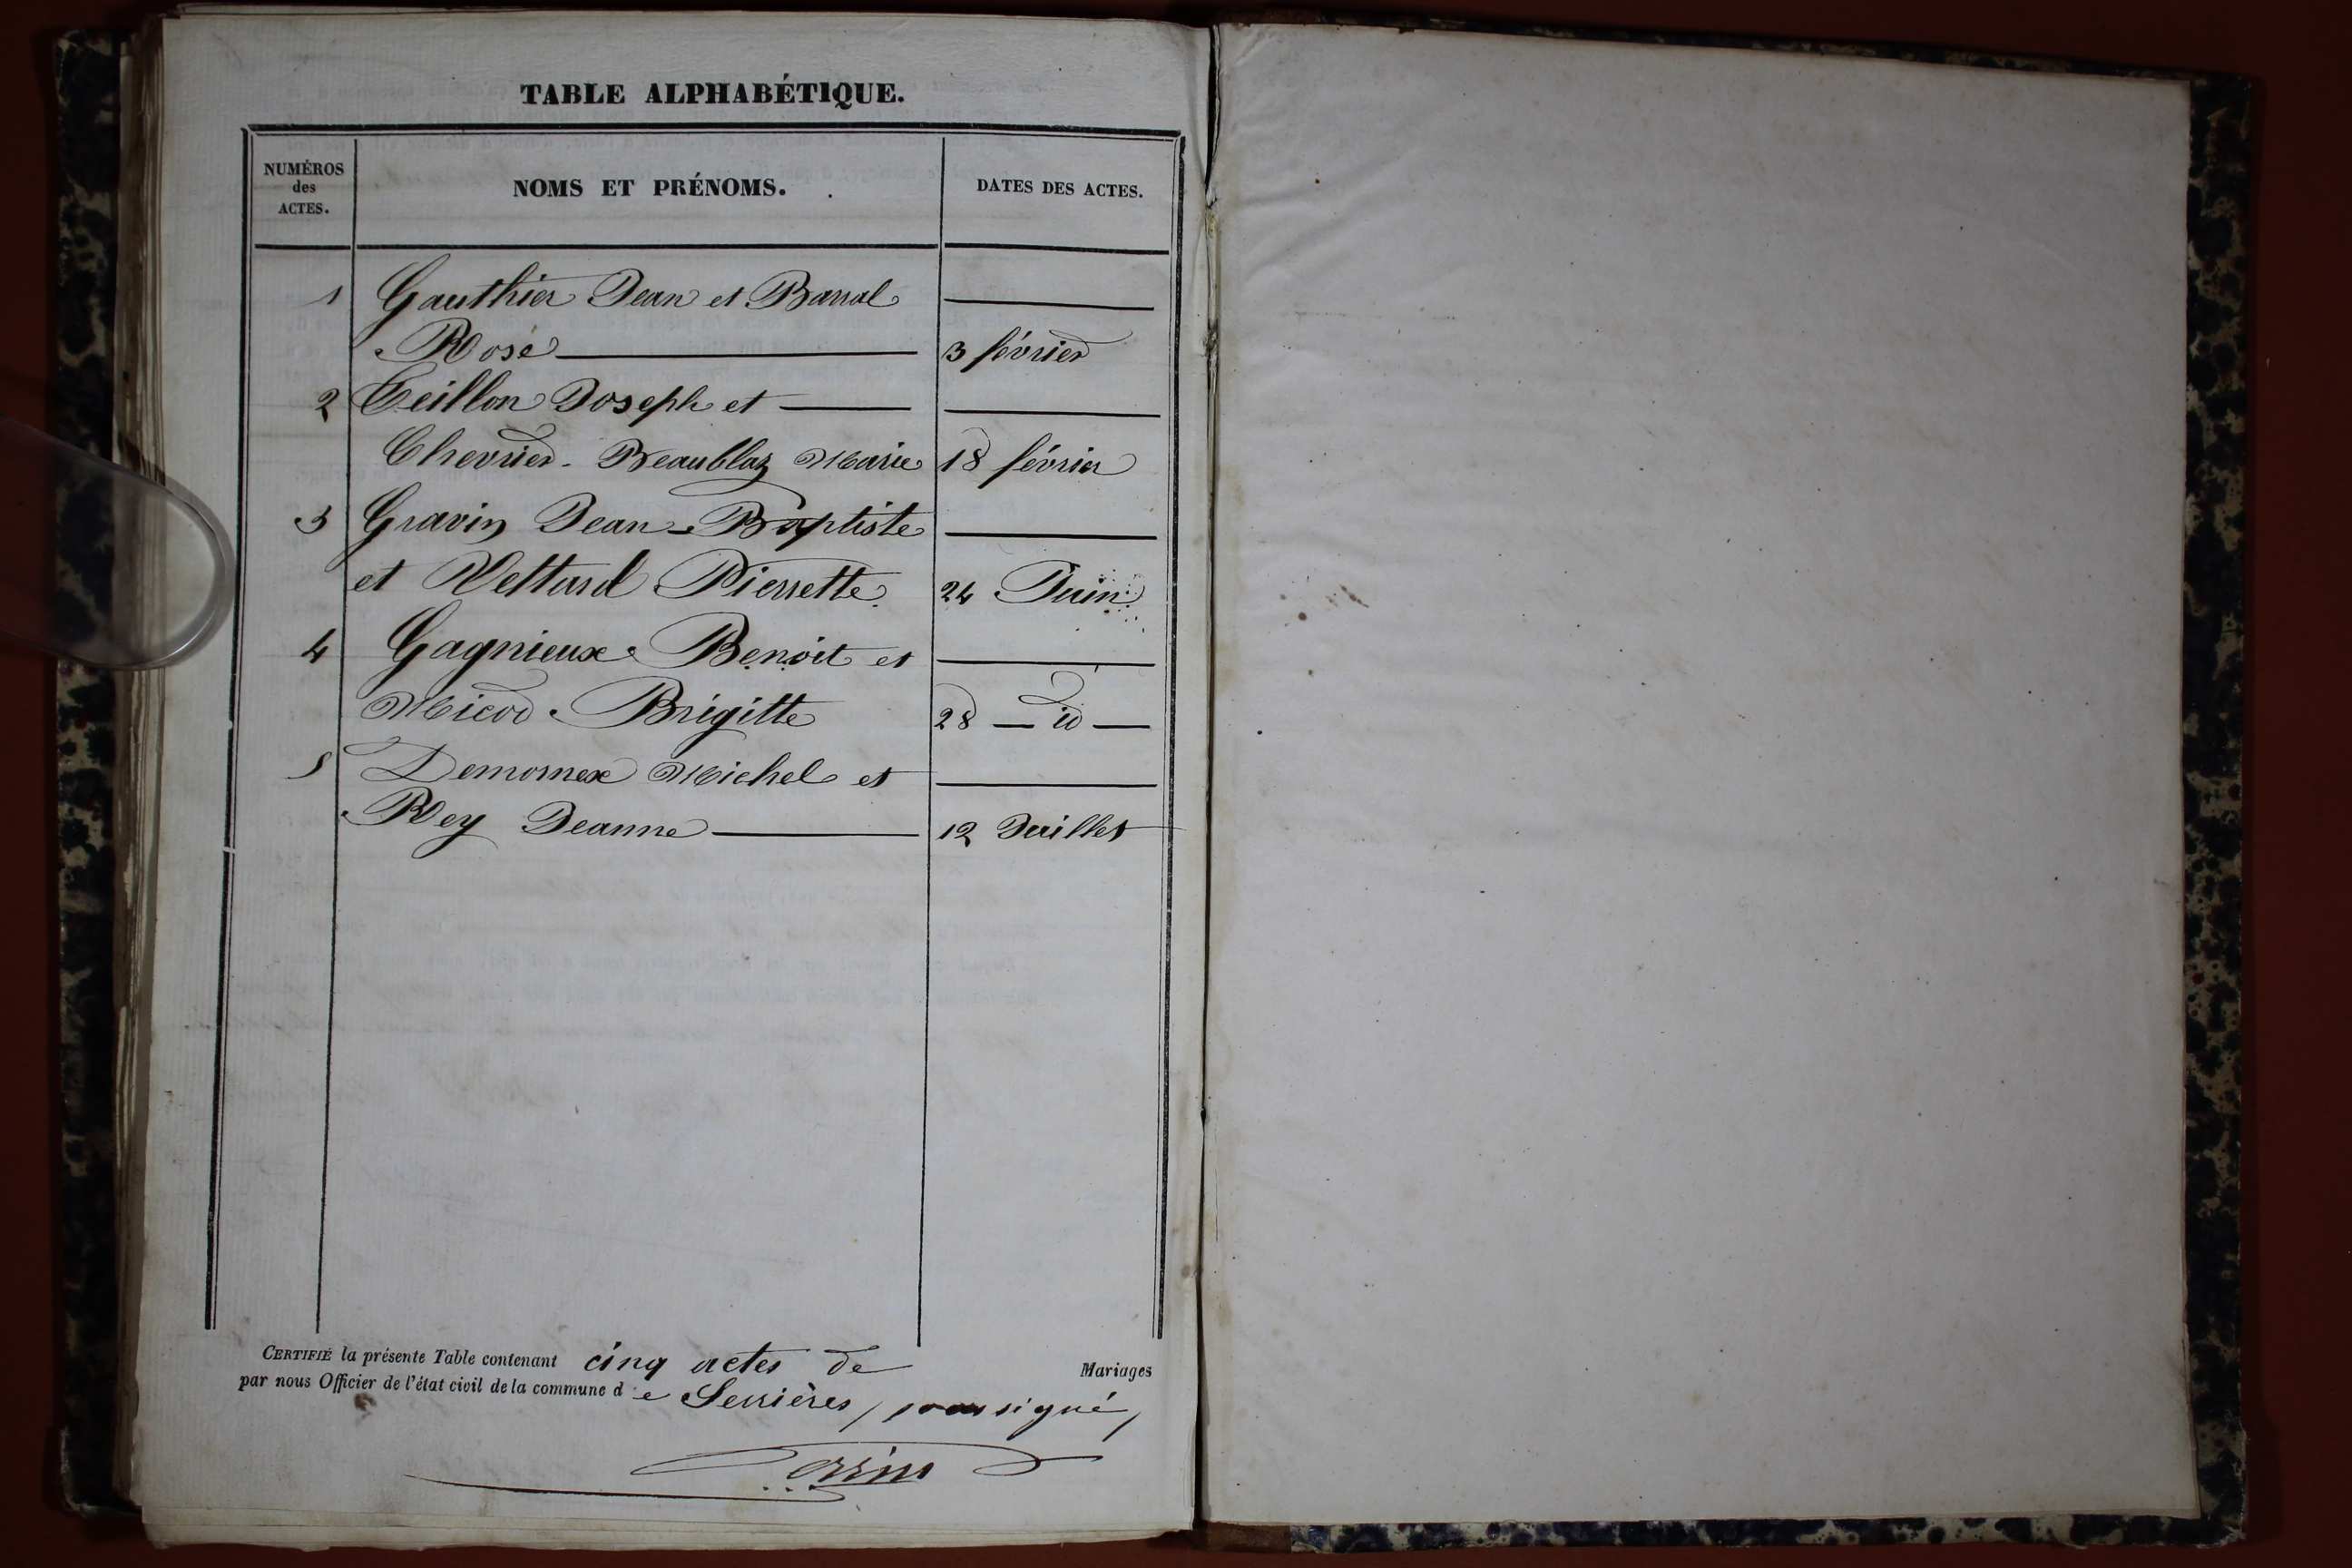 TABLE ALPHABÉTIQUE.
NUMÉROS
des
ACTES.
NOMS ET PRÉNOMS.
DATES DES ACTES.
1 Gauthier Jean et Barral
Rose 3 février
2 Teillon Joseph et
Chevrier-Beaublaz Marie 18 février
3 Gravin Jean-Baptiste
et Vettard Pierrette 24 Juin
4 Gagnieux Benoit et
Micod Brigitte 28 — id —
5 Demornex Michel et
Rey Jeanne 12 Juillet
CERTIFIÉ la présente Table contenant cinq actes de Mariages
par nous Officier de l'état civil de la commune de Serrières, soussigné,
Perrin